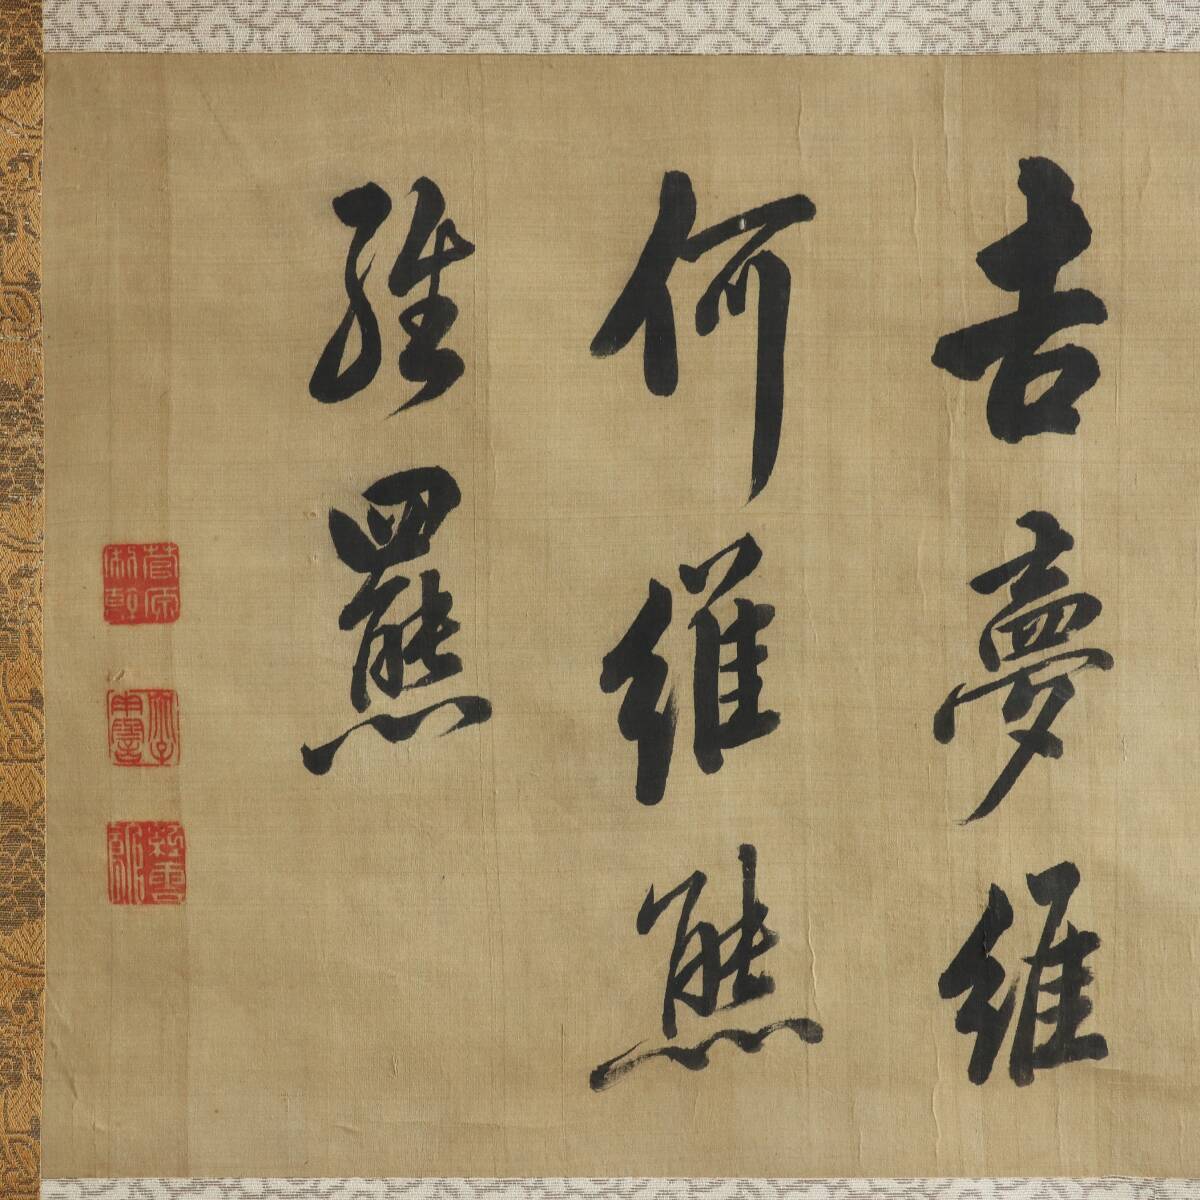 吉夢維
何維熊
維羆
菅原